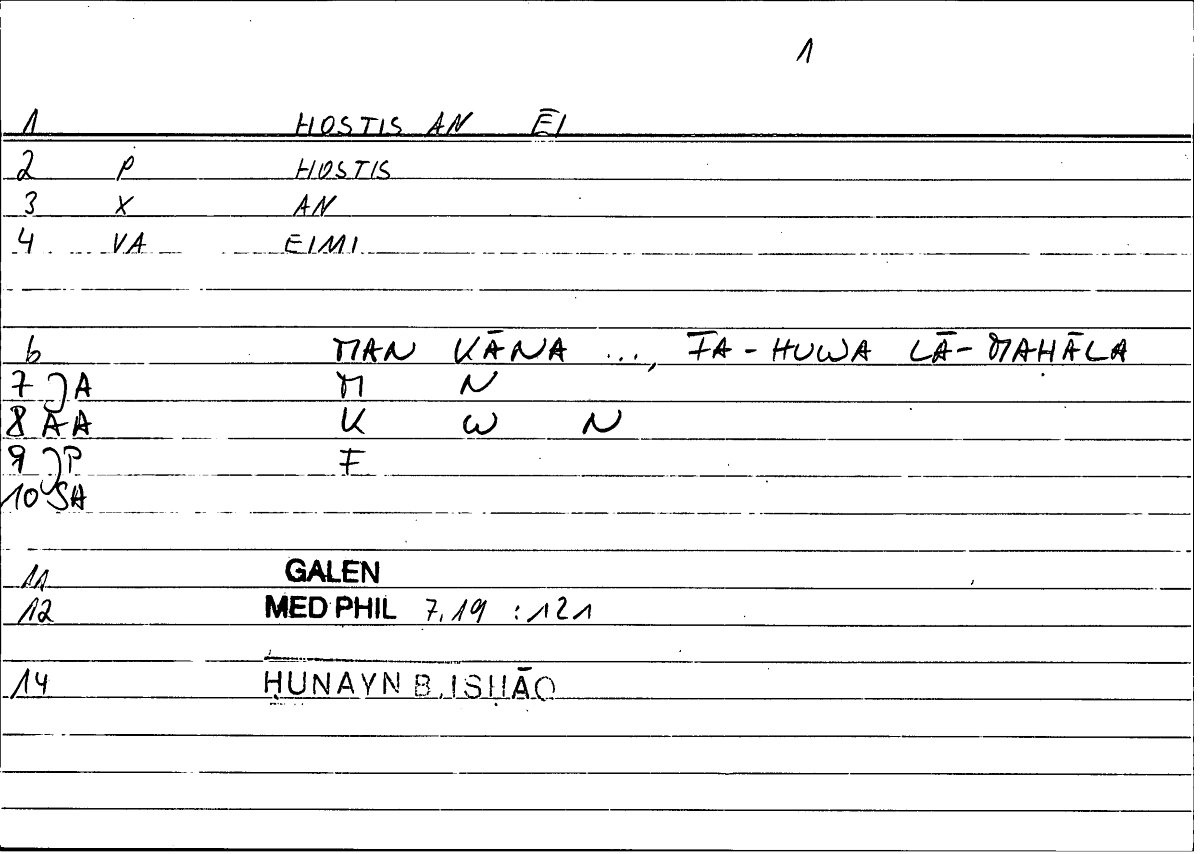 1
1 HOSTIS AN ĒI
2 P HOSTIS
3 X AN
4 VA EIMI
6 MAN KĀNA ..., FA-HUWA LĀ-MAHĀLA
7 JA M N
8 AA K W N
9 JP F
10 SA
11 GALEN
12 MED PHIL 7.19 :121
14 ḤUNAYN B. ISḤĀQ